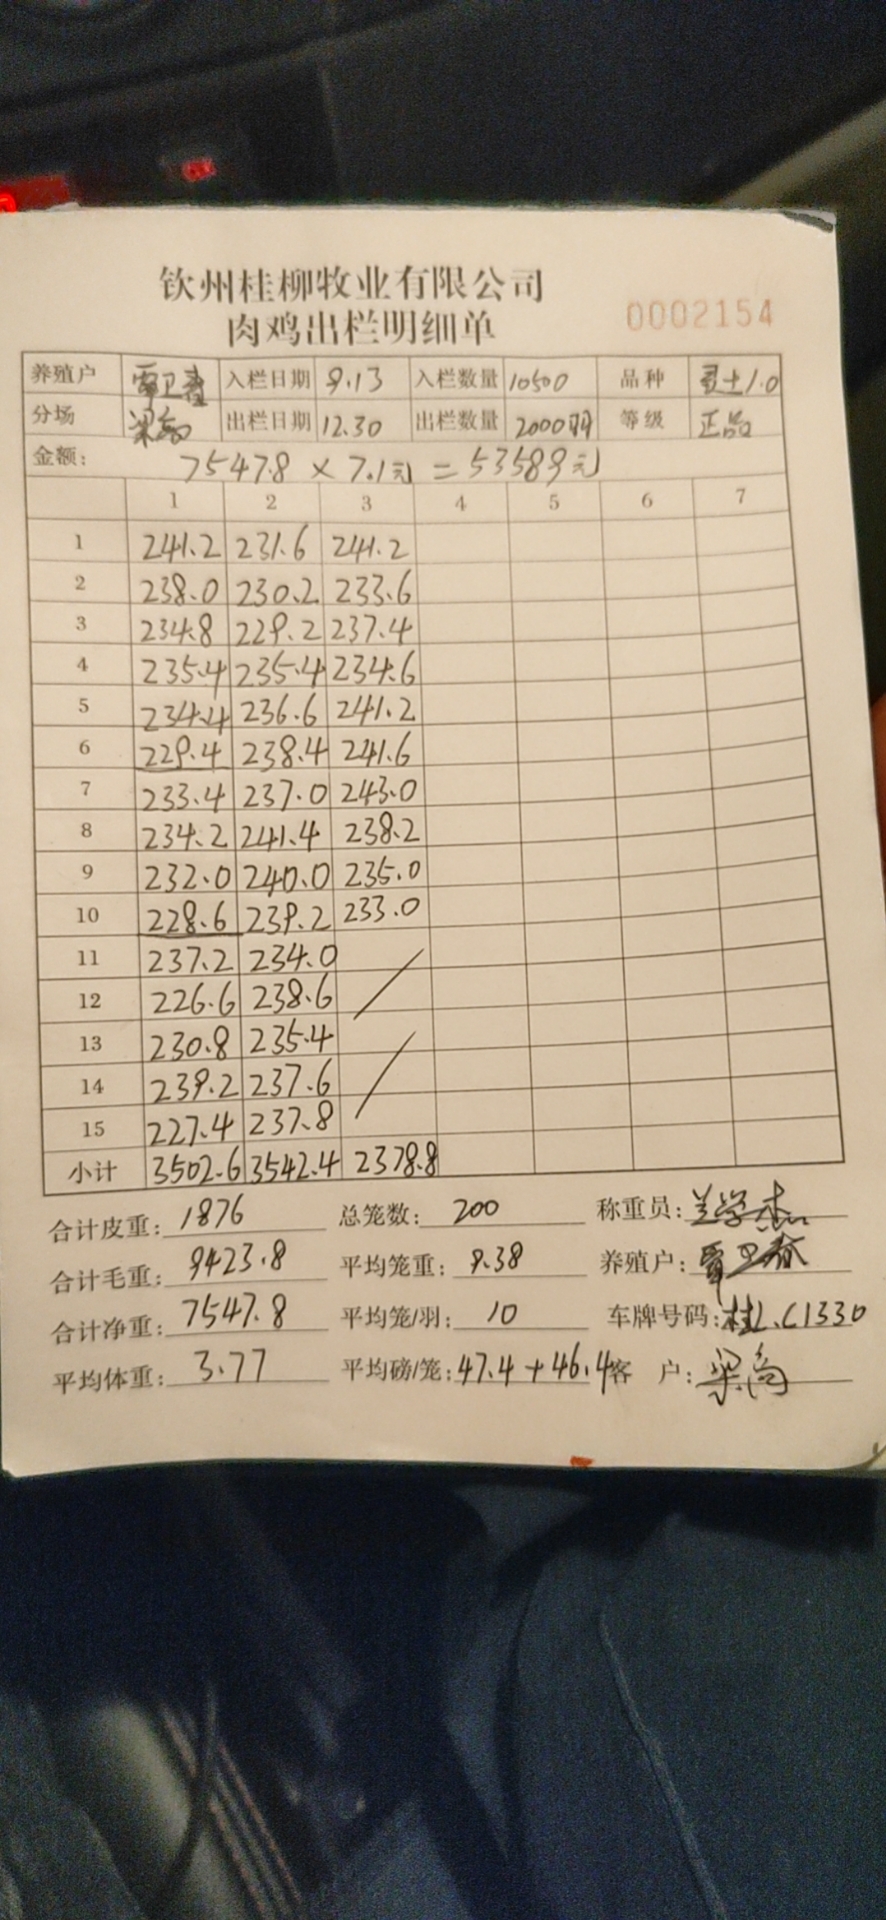 钦州桂柳牧业有限公司
肉鸡出栏明细单 0002154
养殖户 覃卫春 入栏日期 9.13 入栏数量 10500 品种 灵土1.0
分场 梁高 出栏日期 12.30 出栏数量 2000羽 等级 正品
金额: 7547.8 × 7.1元 = 53589元
1 2 3 4 5 6 7
1 241.2 231.6 241.2
2 238.0 230.2 233.6
3 234.8 229.2 237.4
4 235.4 235.4 234.6
5 234.4 236.6 241.2
6 229.4 238.4 241.6
7 233.4 237.0 243.0
8 234.2 241.4 238.2
9 232.0 240.0 235.0
10 228.6 239.2 233.0
11 237.2 234.0
12 226.6 238.6
13 230.8 235.4
14 239.2 237.6
15 227.4 237.8
小计 3502.6 3542.4 2378.8
合计皮重: 1876 总笼数: 200 称重员: 兰学杰
合计毛重: 9423.8 平均笼重: 9.38 养殖户: 覃卫春
合计净重: 7547.8 平均笼/羽: 10 车牌号码: 桂L.C1330
平均体重: 3.77 平均磅/笼: 47.4 + 46.4 客 户: 梁高